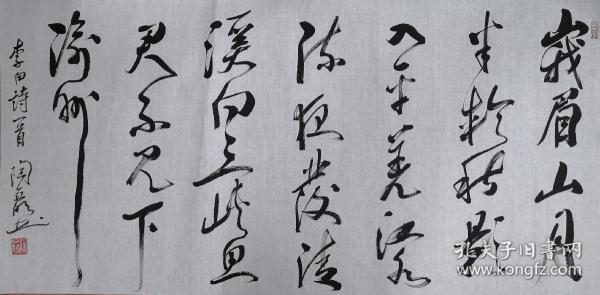 峩眉山月
半輪秋影
入平羌江水
流夜發清
溪向三峡思
君不見下
渝州
李白詩一首 陶
孔夫子旧书网
www.kongfz.com